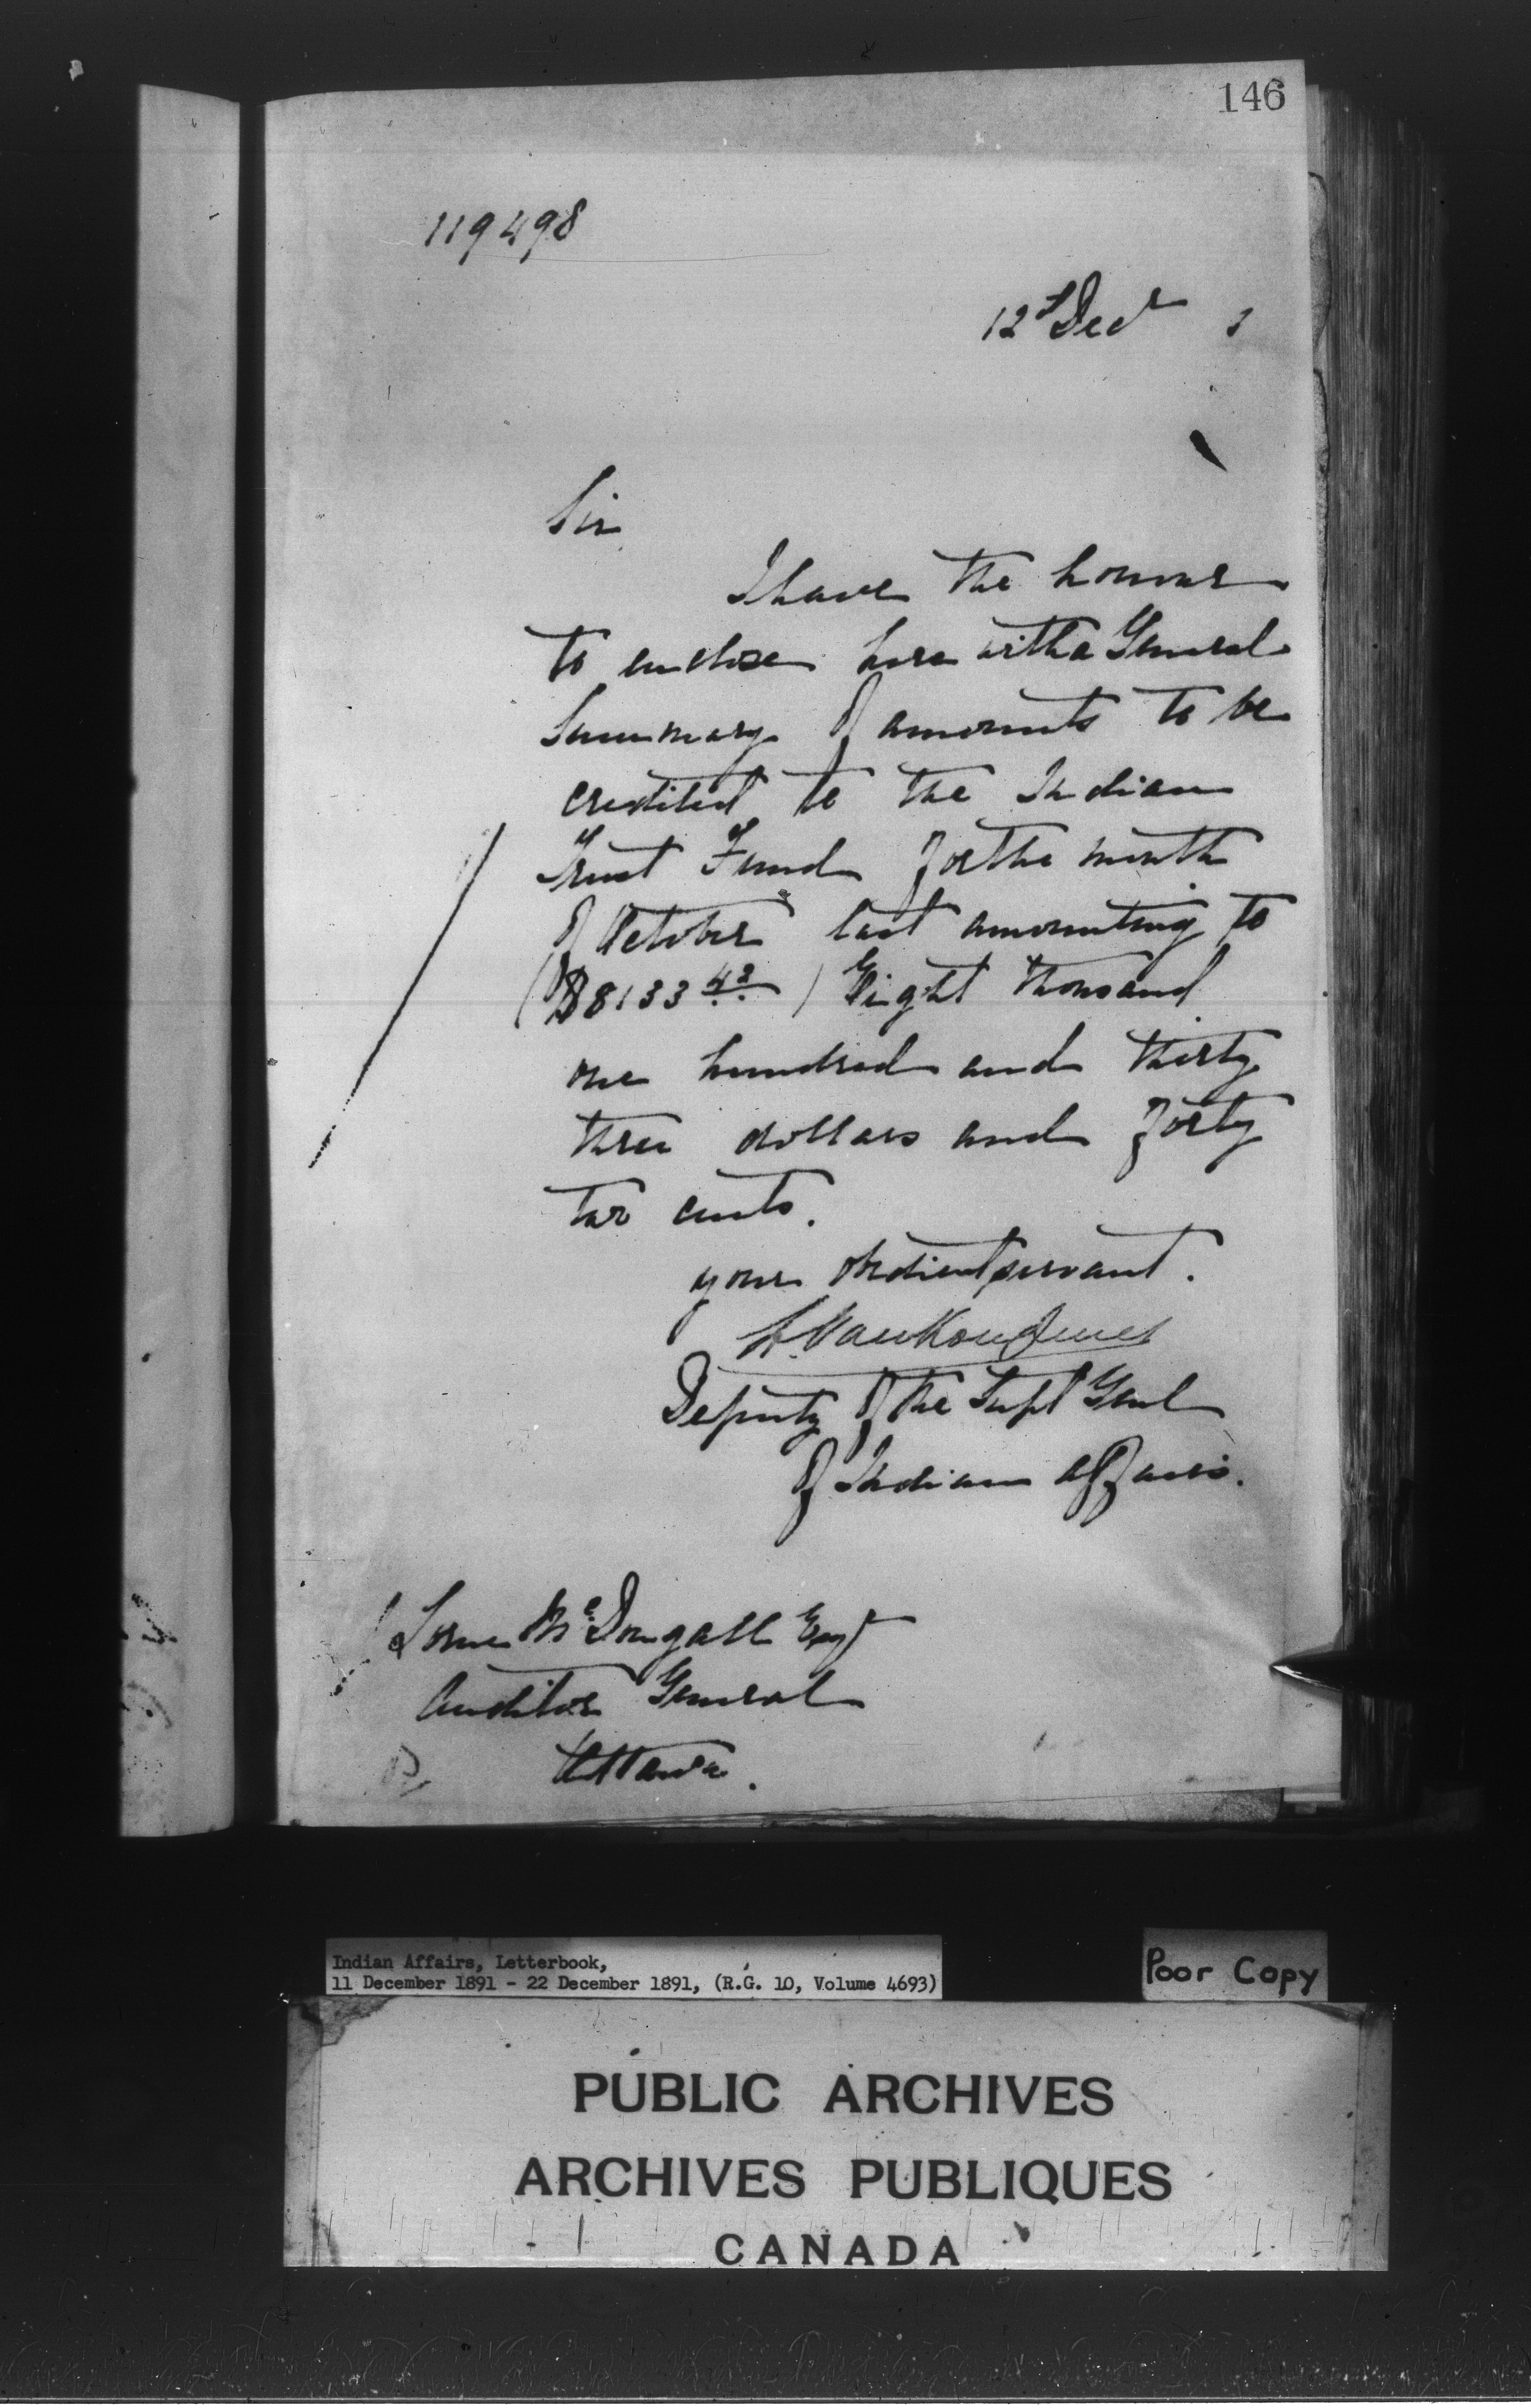 146
119498
12th Decr 1
Sir
I have the honour
to enclose herewith a General
Summary of amounts to be
credited to the Indian
Trust Fund for the month
of October last amounting to
($8133 42) Eight thousand
one hundred and thirty
three dollars and forty
two cents.
your obedient servant.
L. Vankoughnet
Deputy of the Supt Genl
of Indian Affairs.
Lorne McDougall Esqr
Auditor General
Ottawa.
Indian Affairs, Letterbook,
11 December 1891 - 22 December 1891, (R.G. 10, Volume 4693)
Poor Copy
PUBLIC ARCHIVES
ARCHIVES PUBLIQUES
CANADA